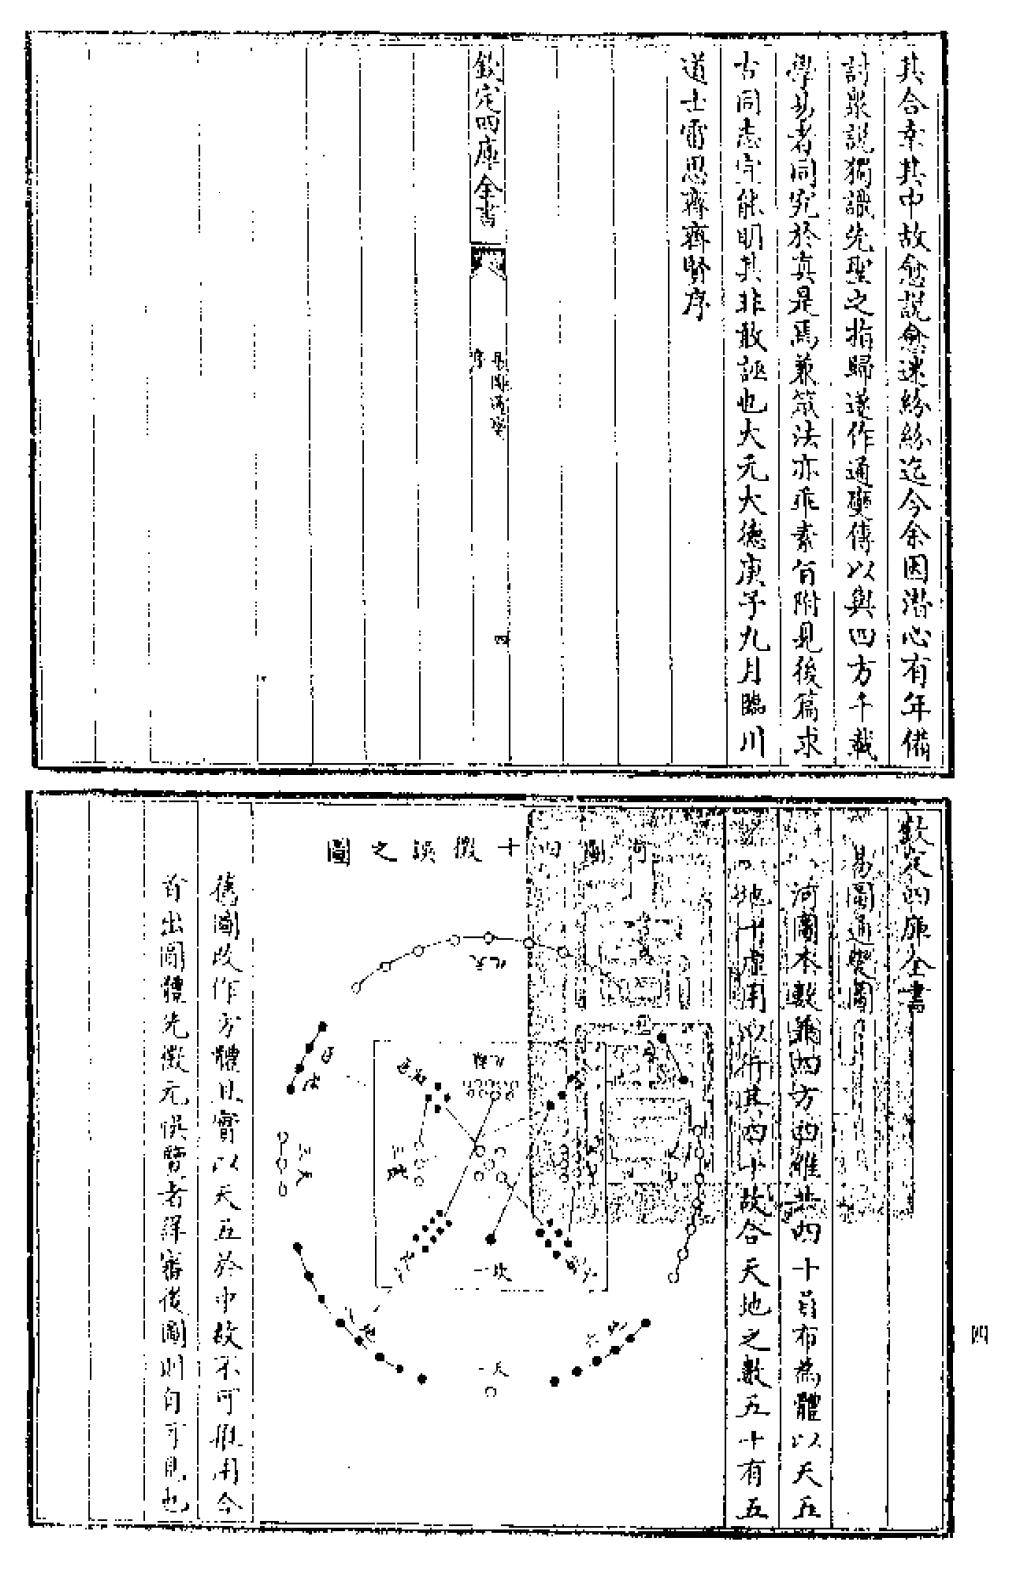 其合幸其中故愈説愈迷紛紛迄今余因潜心有年備
討衆説獨識先聖之指歸遂作通變傳以與四方千載
學易者同究於真是焉兼筮法亦乖素旨附見後篇求
古同志寧能明其非敢誣也大元大德庚子九月臨川
道士雷思齊齊賢序
欽定四庫全書
易圖通變
序
四
欽定四庫全書
易圖通變圖
河圖本數兼四方四維共四十員布為體以天五
地十虛用以行其四十故合天地之數五十有五
河圖四十徵誤之圖
九天
三天
一天
一坎
舊圖改作方體且實以天五於中故不可推用今
首出圖體先徵元俱覽者詳審後圖則自可見也
四